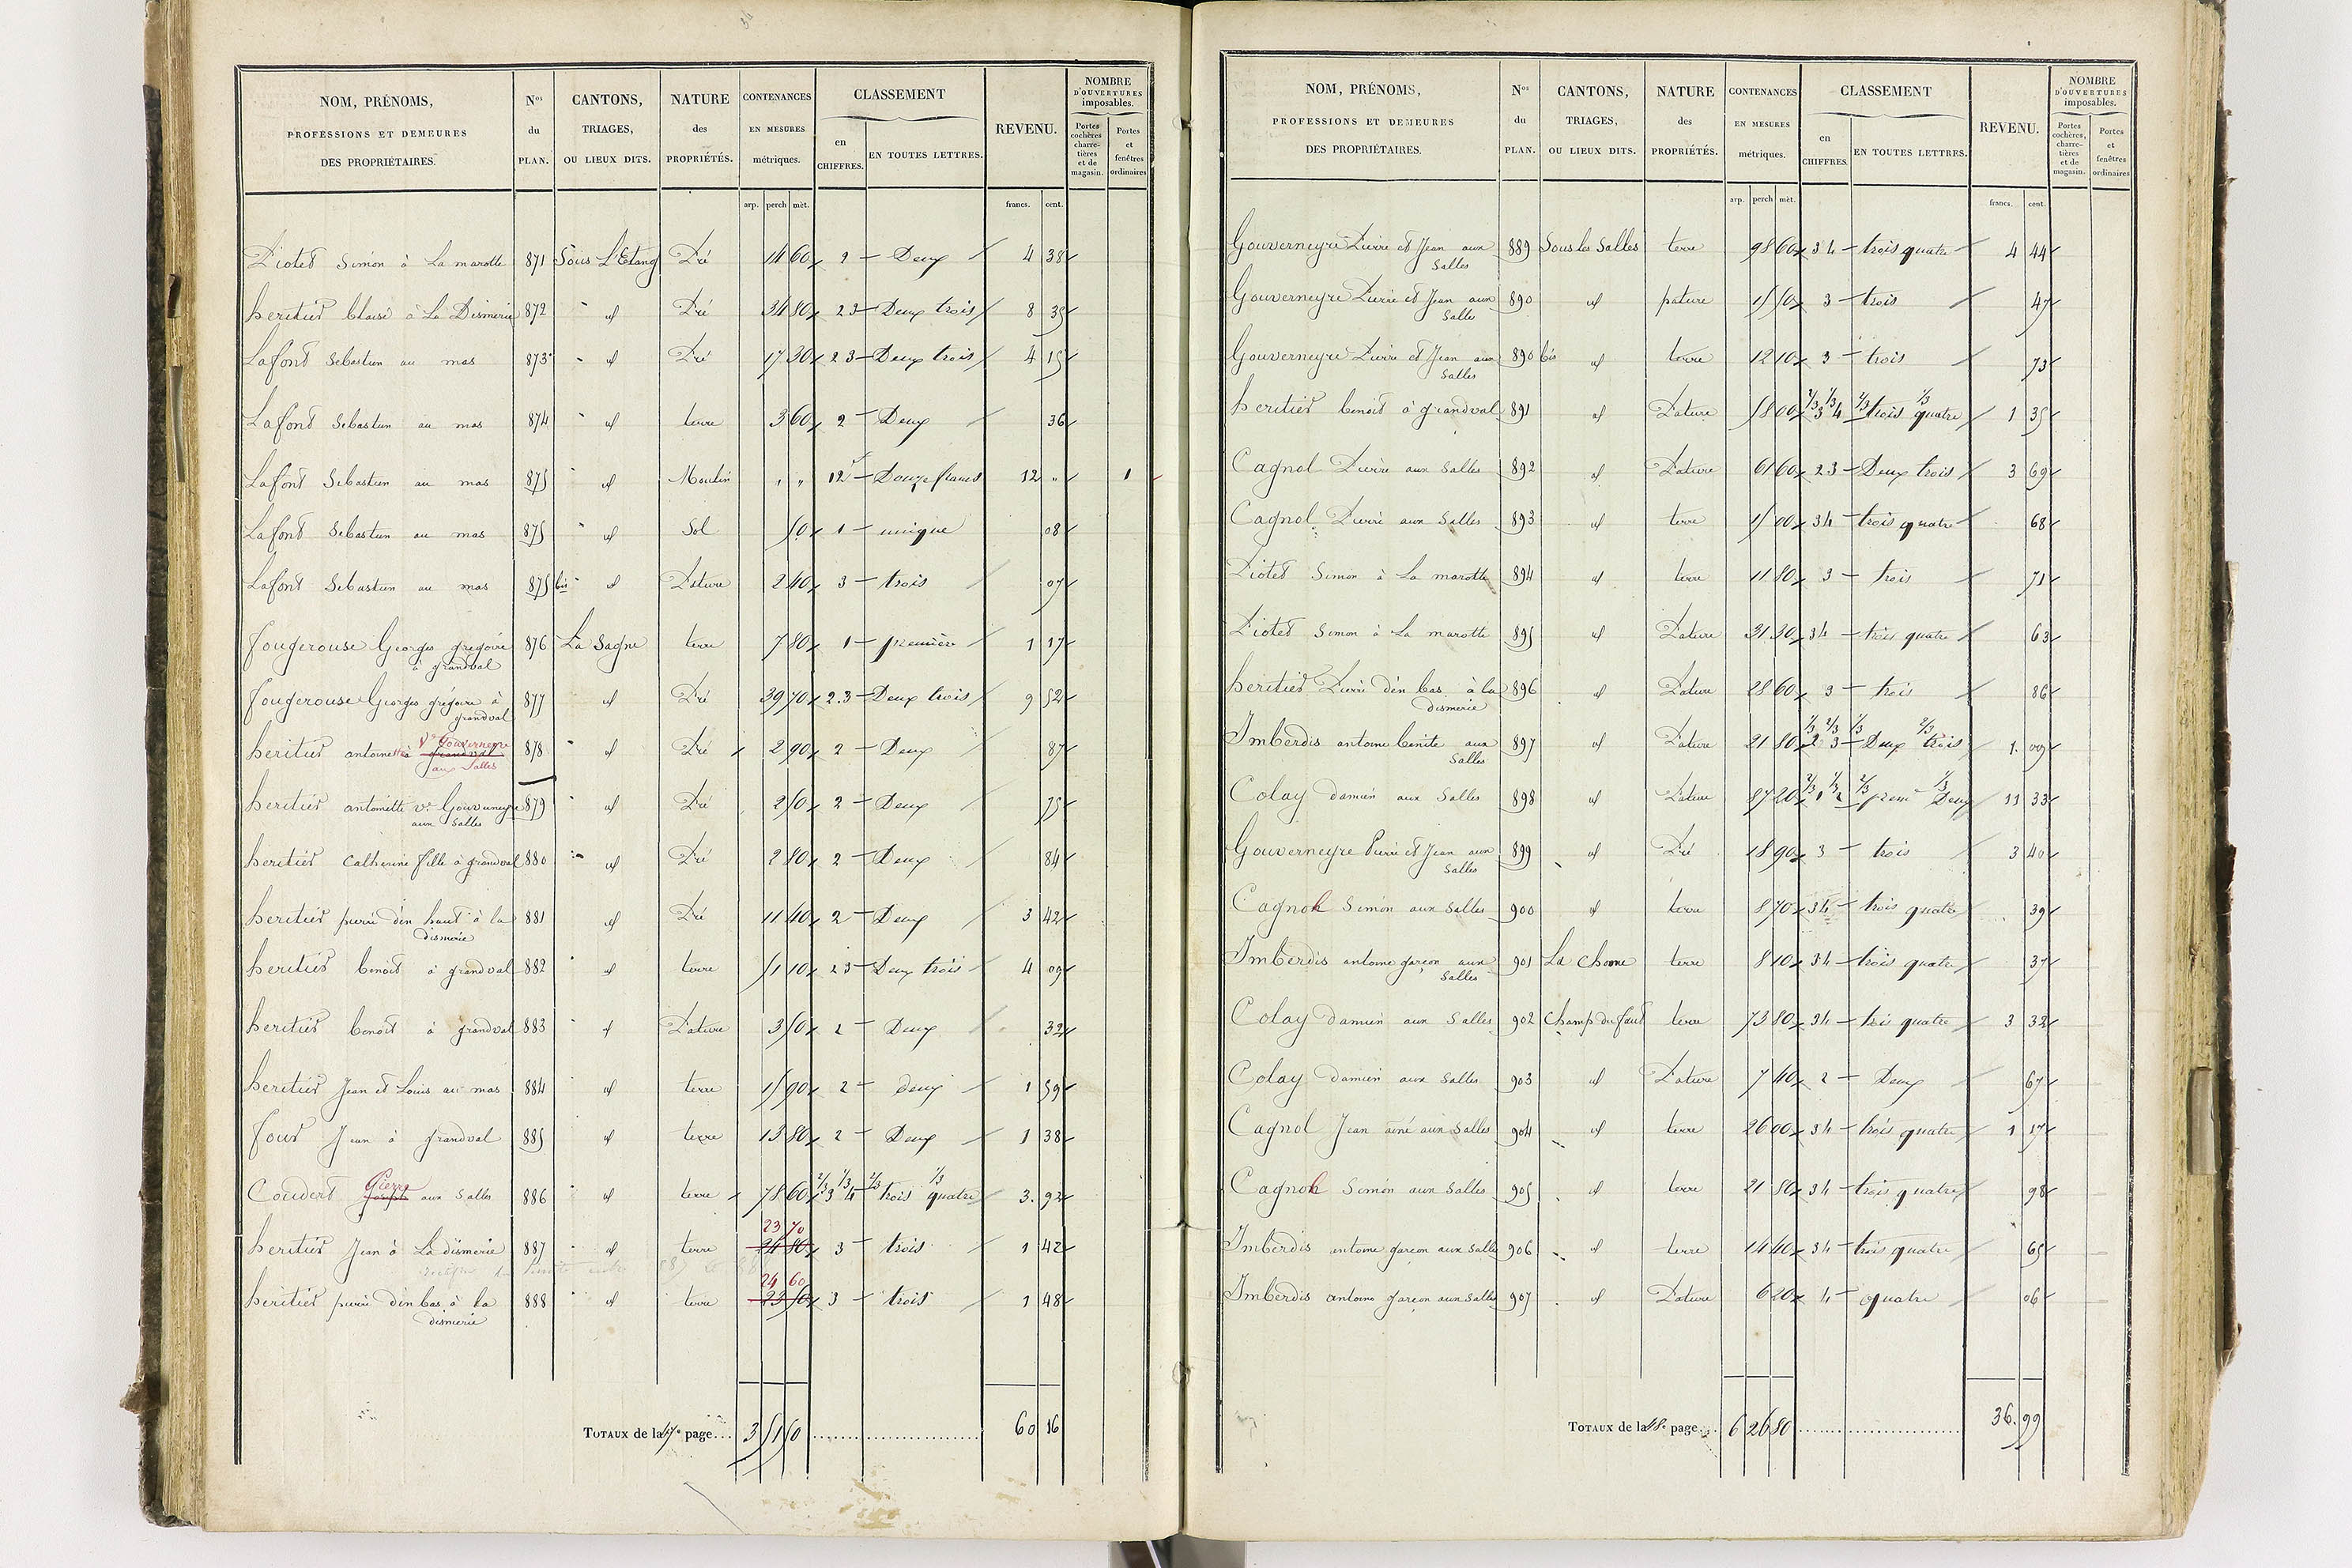 NOM, PRÉNOMS, PROFESSIONS ET DEMEURES DES PROPRIÉTAIRES. Nos du PLAN. CANTONS, TRIAGES, OU LIEUX DITS. NATURE des PROPRIÉTÉS. CONTENANCES EN MESURES métriques. CLASSEMENT en CHIFFRES. EN TOUTES LETTRES. REVENU. NOMBRE D'OUVERTURES imposables. Portes cochères charretières et de magasin. Portes et fenêtres ordinaires
arp. perch mèt. francs. cent.
Piotet Simon à La marotte 871 Sous L'Etang Pré 14 60 2 Deux 4 38
heritier blaise à La Dismerie 872 id Pré 34 80 2 3 Deux trois 8 35
Lafont Sebastien au mas 873 id Pré 17 30 2 3 Deux trois 4 15
Lafont Sebastien au mas 874 id terre 3 60 2 Deux 36
Lafont Sebastien au mas 875 id Moulin " " 12f Douze francs 12 " 1
Lafont Sebastien au mas 875 id Sol 50 1 unique 08
Lafont Sebastien au mas 875 bis id Pature 2 40 3 trois 07
fougerouse Georges gregoire à grandval 876 La Sagne terre 7 80 1 première 1 17
fougerouse Georges grégoire à grandval 877 id Pré 39 70 2.3 Deux trois 9 52
heritier antoinette à grandval Ve Gouverneyre aux Salles 878 id Pré 2 90 2 Deux 87
heritier antoinette ve Gouverneyre aux Salles 879 id Pré 2 50 2 Deux 75
heritier Catherine fille à grandval 880 id Pré 2 80 2 Deux 84
heritier pierre d'en haut à la dismerie 881 id Pré 11 40 2 Deux 3 42
heritier benoit à grandval 882 id terre 51 10 2 3 Deux trois 4 09
heritier benoit à grandval 883 id Pature 3 50 2 Deux 32
heritier Jean et Louis au mas 884 id terre 15 90 2 deux 1 59
four Jean à grandval 885 id terre 13 80 2 Deux 1 38
Coudert Joseph Pierre aux Salles 886 id terre 78 60 2/3 3 1/3 4 2/3 trois 1/3 quatre 3. 92
heritier Jean à La dismerie 887 id terre 23 70 24 80 3 trois 1 42
heritier pierre d'en bas à la dismerie 888 id terre 24 60 23 50 3 trois 1 48
TOTAUX de la 47e page... 3 51 50 60 16
NOM, PRÉNOMS, PROFESSIONS ET DEMEURES DES PROPRIÉTAIRES. Nos du PLAN. CANTONS, TRIAGES, OU LIEUX DITS. NATURE des PROPRIÉTÉS. CONTENANCES EN MESURES métriques. CLASSEMENT en CHIFFRES. EN TOUTES LETTRES. REVENU. NOMBRE D'OUVERTURES imposables. Portes cochères, charretières et de magasin. Portes et fenêtres ordinaires
arp. perch mèt. francs. cent.
Gouverneyre Pierre et Jean aux Salles 889 Sous les Salles terre 98 60 3 4 trois quatre 4 44
Gouverneyre Pierre et Jean aux Salles 890 id pature 15 50 3 trois 47
Gouverneyre Pierre et Jean aux Salles 890 bis id terre 12 10 3 trois 73
heritier benoit à grandval 891 id Pature 58 00 2/3 3 1/3 4 2/3 trois 1/3 quatre 1 35
Cagnol Pierre aux Salles 892 id Pature 61 60 2 3 Deux trois 3 69
Cagnol Pierre aux Salles 893 id terre 15 00 3 4 trois quatre 68
Piotet Simon à La marotte 894 id terre 11 80 3 trois 71
Piotet Simon à La marotte 895 id Pature 31 30 3 4 trois quatre 63
heritier Pierre d'en bas à la dismerie 896 id Pature 28 60 3 trois 86
Imberdis antoine benite aux Salles 897 id Pature 21 80 1/3 2 2/3 3 1/3 Deux 2/3 trois 1. 09
Colay damien aux Salles 898 id Pature 87 20 2/3 1 1/3 2 2/3 prem 1/3 Deux 11 33
Gouverneyre Pierre et Jean aux Salles 899 id Pré 18 90 3 trois 3 40
Cagnol Simon aux Salles 900 id terre 8 70 3 4 trois quatre 39
Imberdis antoine garçon aux Salles 901 La Chome terre 8 10 3 4 trois quatre 37
Colay damien aux Salles 902 Champ du faud terre 73 80 3 4 trois quatre 3 32
Colay damien aux Salles 903 id Pature 7 40 2 Deux 67
Cagnol Jean ainé aux Salles 904 id terre 26 00 3 4 trois quatre 1 17
Cagnol Simon aux Salles 905 id terre 21 80 3 4 trois quatre 98
Imberdis antoine garçon aux Salles 906 id terre 14 40 3 4 trois quatre 65
Imberdis antoine garçon aux Salles 907 id Pature 6 20 4 quatre 06
TOTAUX de la 48e page... 6 26 80 36. 99